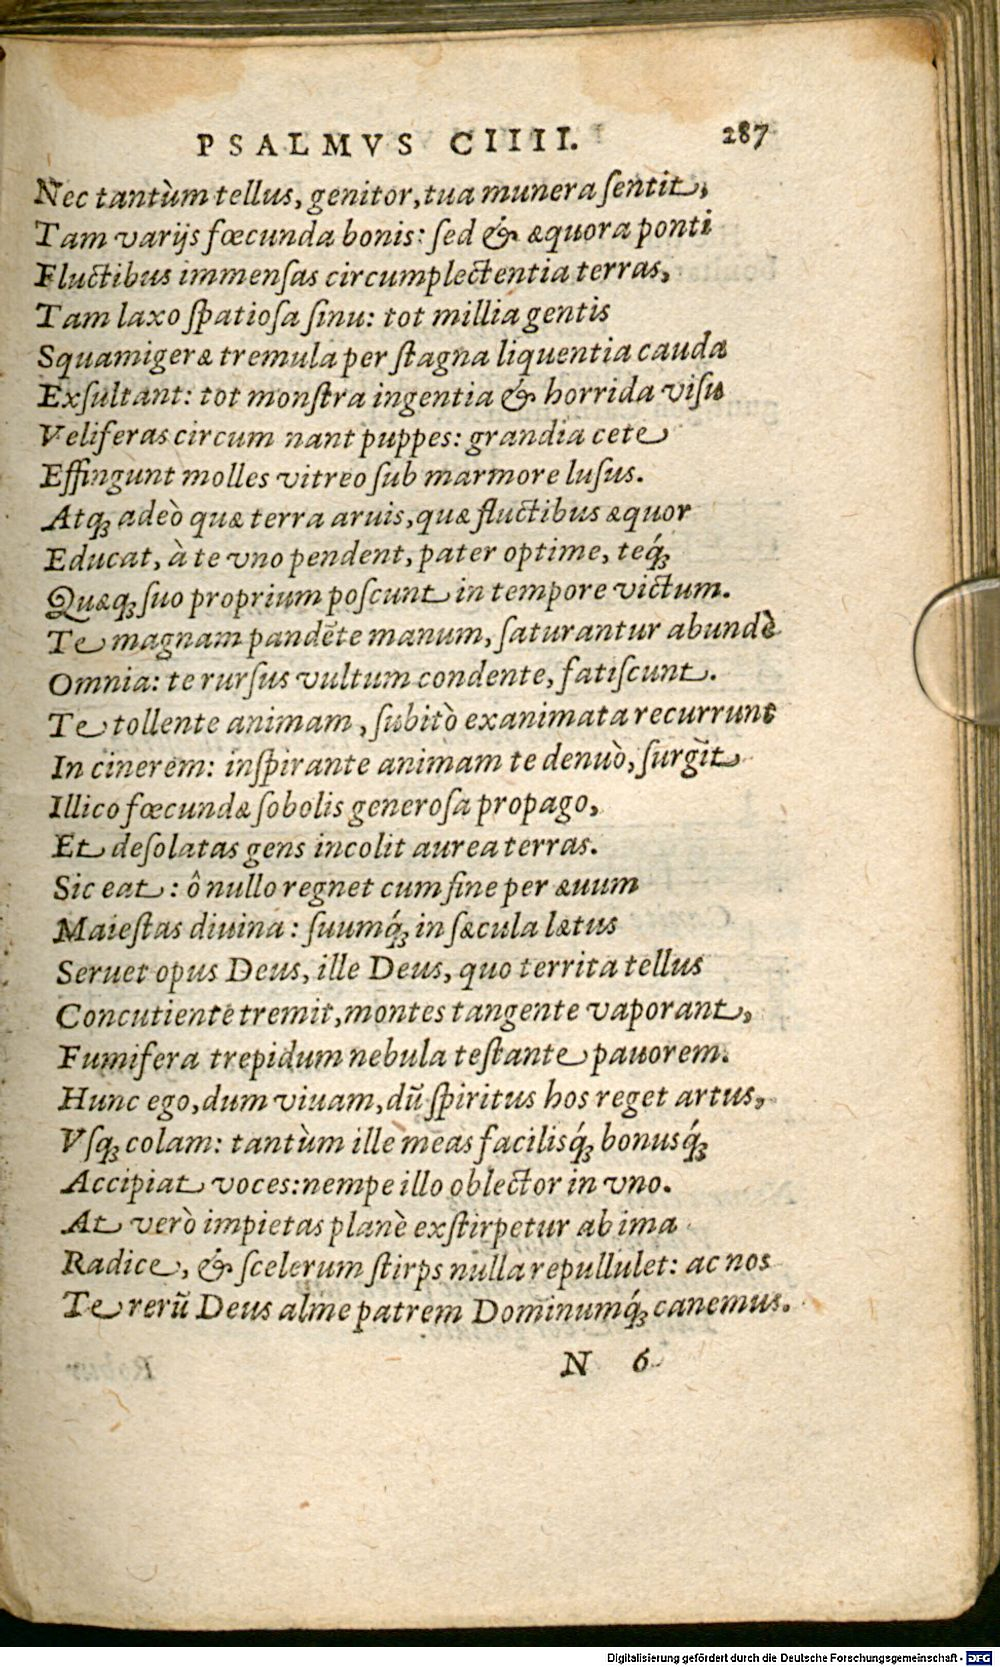 PSALMVS CIIII. 287
Nec tantùm tellus, genitor, tua munera ſentit,
Tam varijs fœcunda bonis: ſed & æquora ponti
Fluctibus immenſas circumplectentia terras,
Tam laxo ſpatioſa ſinu: tot millia gentis
Squamigeræ tremula per ſtagna liquentia cauda
Exſultant: tot monſtra ingentia & horrida viſu
Veliferas circum nant puppes: grandia cete
Effingunt molles vitreo ſub marmore luſus.
Atq́; adeò quæ terra aruis, quæ fluctibus æquor
Educat, à te vno pendent, pater optime, teq́;
Quæq; ſuo proprium poſcunt in tempore victum.
Te magnam pandēte manum, ſaturantur abundè
Omnia: te rurſus vultum condente, fatiſcunt.
Te tollente animam, ſubitò exanimata recurrunt
In cinerem: inſpirante animam te denuò, ſurgit
Illico fœcundæ ſobolis generoſa propago,
Et deſolatas gens incolit aurea terras.
Sic eat: ô nullo regnet cum fine per æuum
Maieſtas diuina: ſuumq́; in ſæcula lætus
Seruet opus Deus, ille Deus, quo territa tellus
Concutiente tremit, montes tangente vaporant,
Fumifera trepidum nebula teſtante pauorem.
Hunc ego, dum viuam, dū ſpiritus hos reget artus,
Vſq; colam: tantùm ille meas facilisq́; bonusq́;
Accipiat voces: nempe illo oblector in vno.
At verò impietas planè exſtirpetur ab ima
Radice, & ſcelerum ſtirps nulla repullulet: ac nos
Te rerū Deus alme patrem Dominumq́; canemus.
N 6
Digitalisierung gefördert durch die Deutsche Forschungsgemeinschaft - DFG